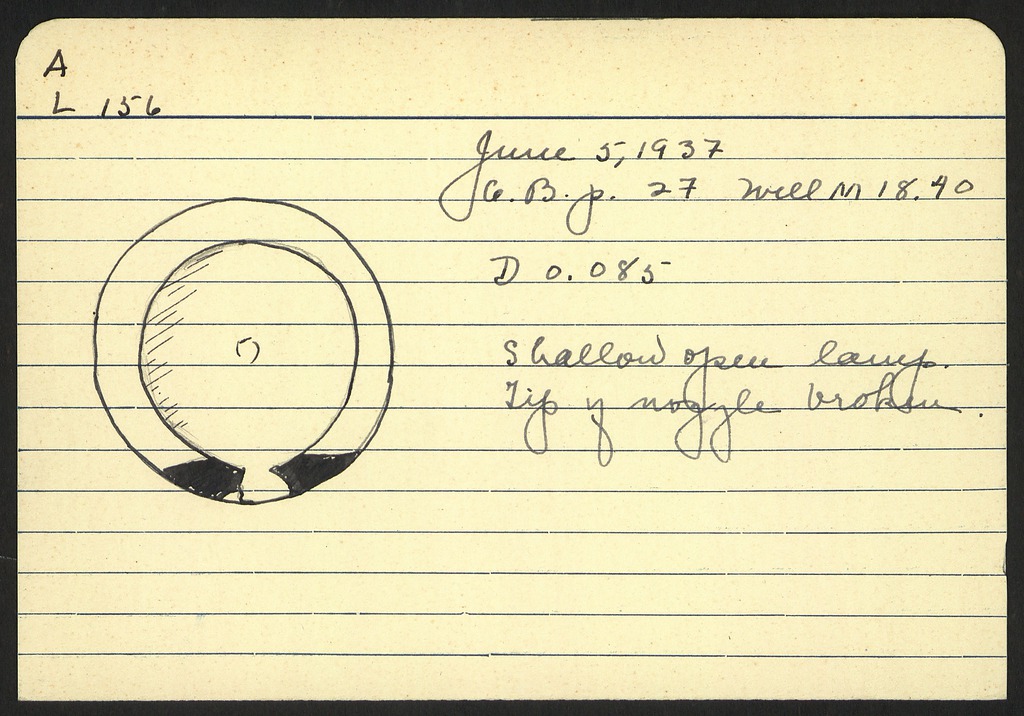 A
L 156
June 5, 1937
G.B.p. 27 Well M 18.40
D 0.085
Shallow open lamp.
Tip of nozzle broken.